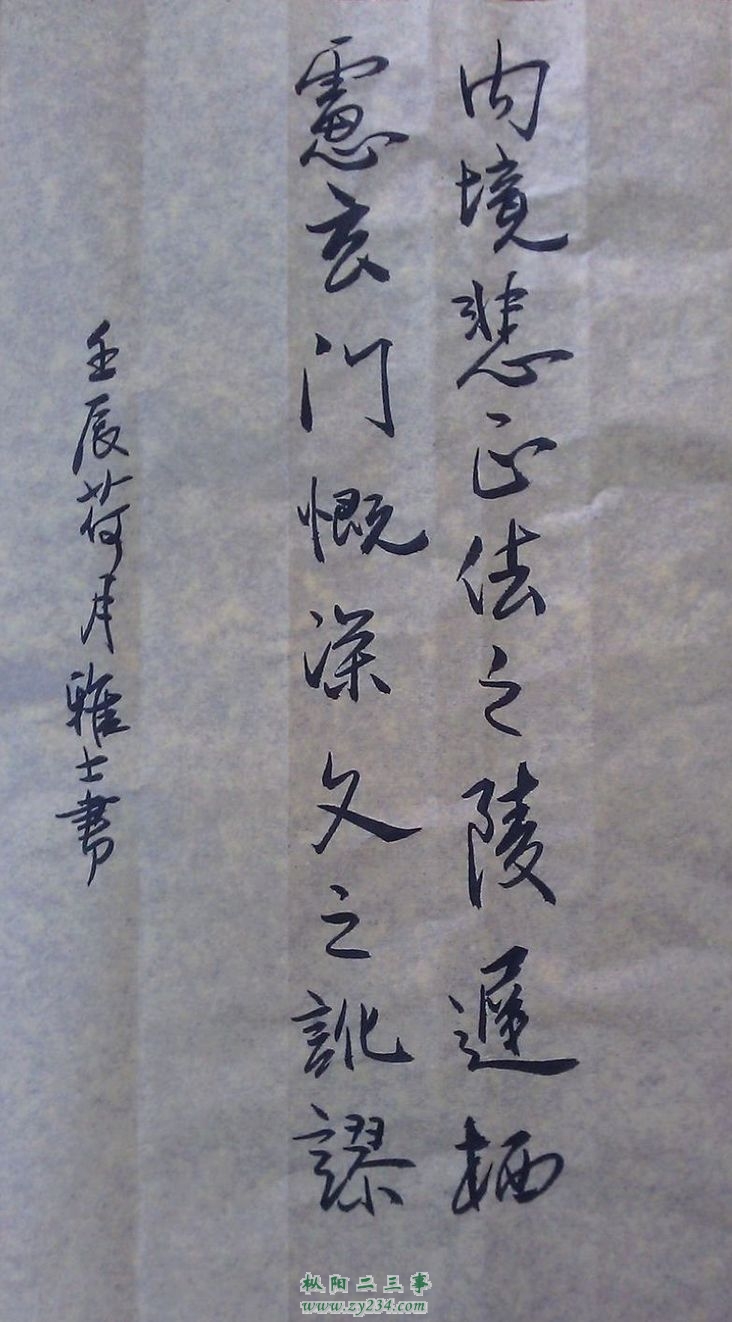 内境悲正法之陵遲栖
慮玄門慨深文之訛謬
壬辰荷月雅士書
枞阳二三事
www.zy234.com